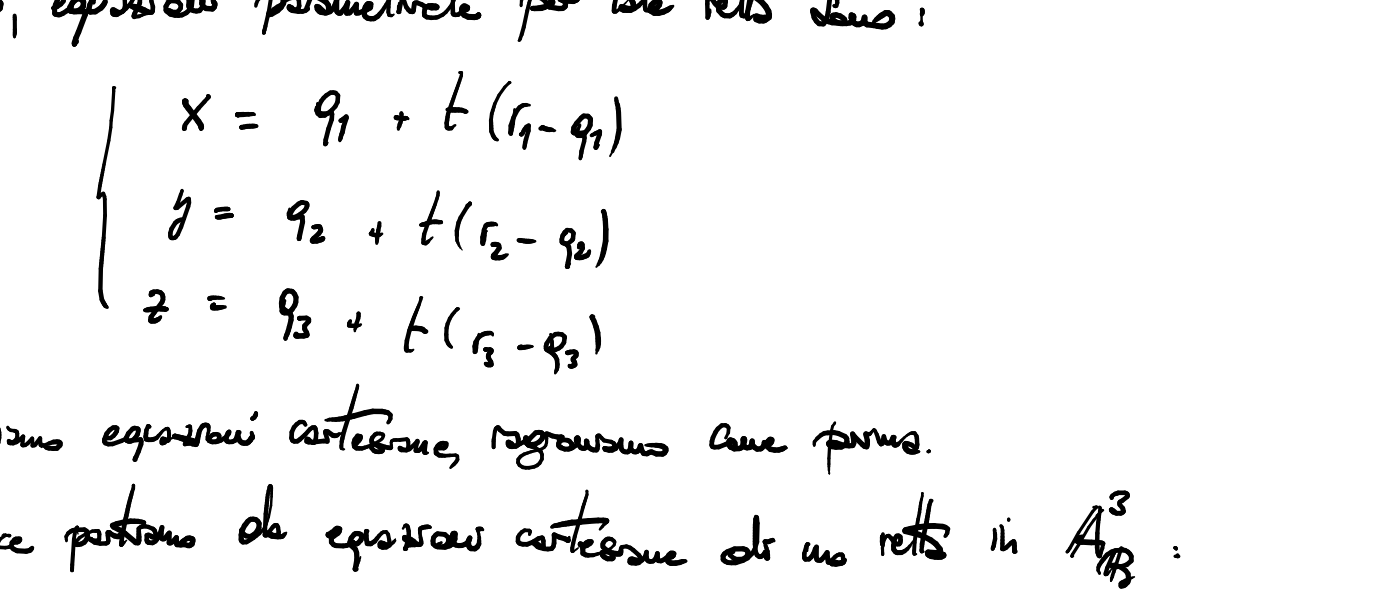 , equazioni parametriche per tale retta sono :
x = q₁ + t (r₁ - q₁)
y = q₂ + t (r₂ - q₂)
z = q₃ + t (r₃ - q₃)
equazioni cartesiane, ragioniamo come prima.
partiamo da equazioni cartesiane di una retta in 𝔸³_ℝ :